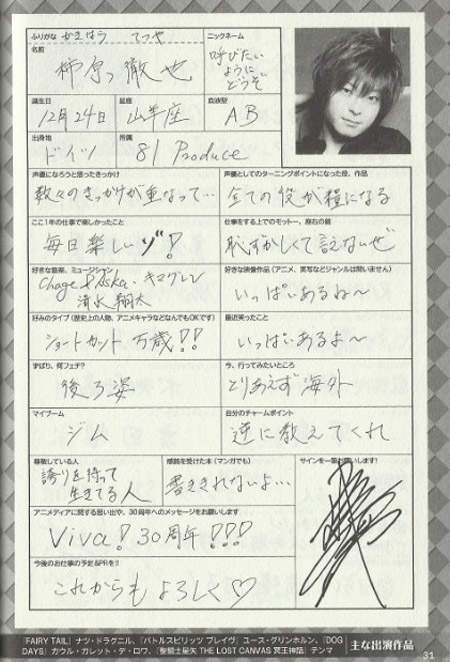 ふりがな かきはら てつや
ニックネーム
名前
柿原っ徹也
呼びたい
ように
どうぞ
誕生日
12月24日
星座
山羊座
血液型
AB
出身地
ドイツ
所属
81 Produce
声優になろうと思ったきっかけ
数々のきっかけが重なって…
声優としてのターニングポイントになった役、作品
全ての役が糧になる
ここ1年の仕事で楽しかったこと
毎日楽しいゾ!
仕事をする上でのモットー、座右の銘
恥ずかしくて言えないぜ
好きな音楽、ミュージシャン
Chage & Aska・キマグレン
清水翔太
好きな映像作品(アニメ、実写などジャンルは問いません)
いっぱいあるね〜
好みのタイプ(歴史上の人物、アニメキャラなどなんでもOKです)
ショートカット万歳!!
最近笑ったこと
いっぱいあるよ〜
ずばり、何フェチ?
後ろ姿
今、行ってみたいところ
とりあえず海外
マイブーム
ジム
自分のチャームポイント
逆に教えてくれ
尊敬している人
誇りを持って
生きてる人
感銘を受けた本(マンガでも)
書ききれないよ…
サインを一筆お願いします!
アニメディアに関する思い出や、30周年へのメッセージをお願いします
Viva! 30周年!!!
今後のお仕事の予定&PRを!!
これからもよろしく♡
『FAIRY TAIL』ナツ・ドラグニル、『バトルスピリッツ ブレイヴ』ユース・グリンホルン、『DOG
DAYS』ガウル・ガレット・デ・ロワ、『聖闘士星矢 THE LOST CANVAS 冥王神話』テンマ
主な出演作品
31